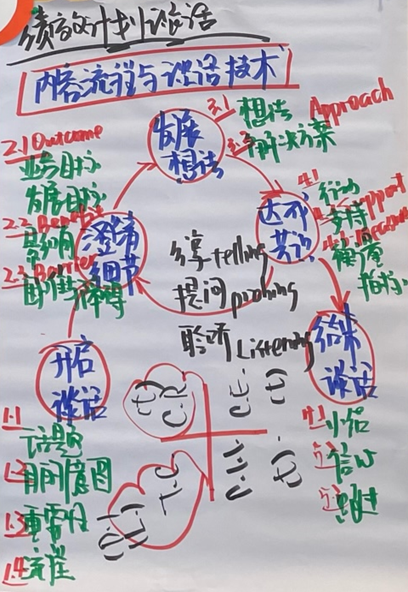 绩效计划谈话
内容流程与谈话技术
发展
想法
3.1 想法 Approach
3.2 解决方案
2.1 Outcome
业务目标
发展目标
2.2 Benefit
影响
2.3 Barrier
障碍
澄清
细节
达成
共识
4.1 行动
4.2 支持 Support
4.3 衡量 Measure
指标
分享 telling
提问 probing
聆听 Listening
开启
谈话
1.1 话题
1.2 目的意图
1.3 重要性
1.4 流程
结束
谈话
5.1 小结
5.2 信心
5.3 跟进